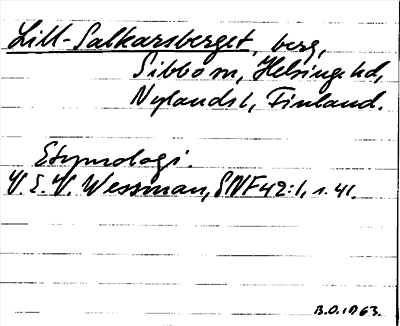 Lill-Salkarsberget, berg,
Sibbo sn, Helsinge hd,
Nylands l, Finland.
Etymologi.
V. E. V. Wessman, SNF 42:1, s. 41.
B.O. 1963.